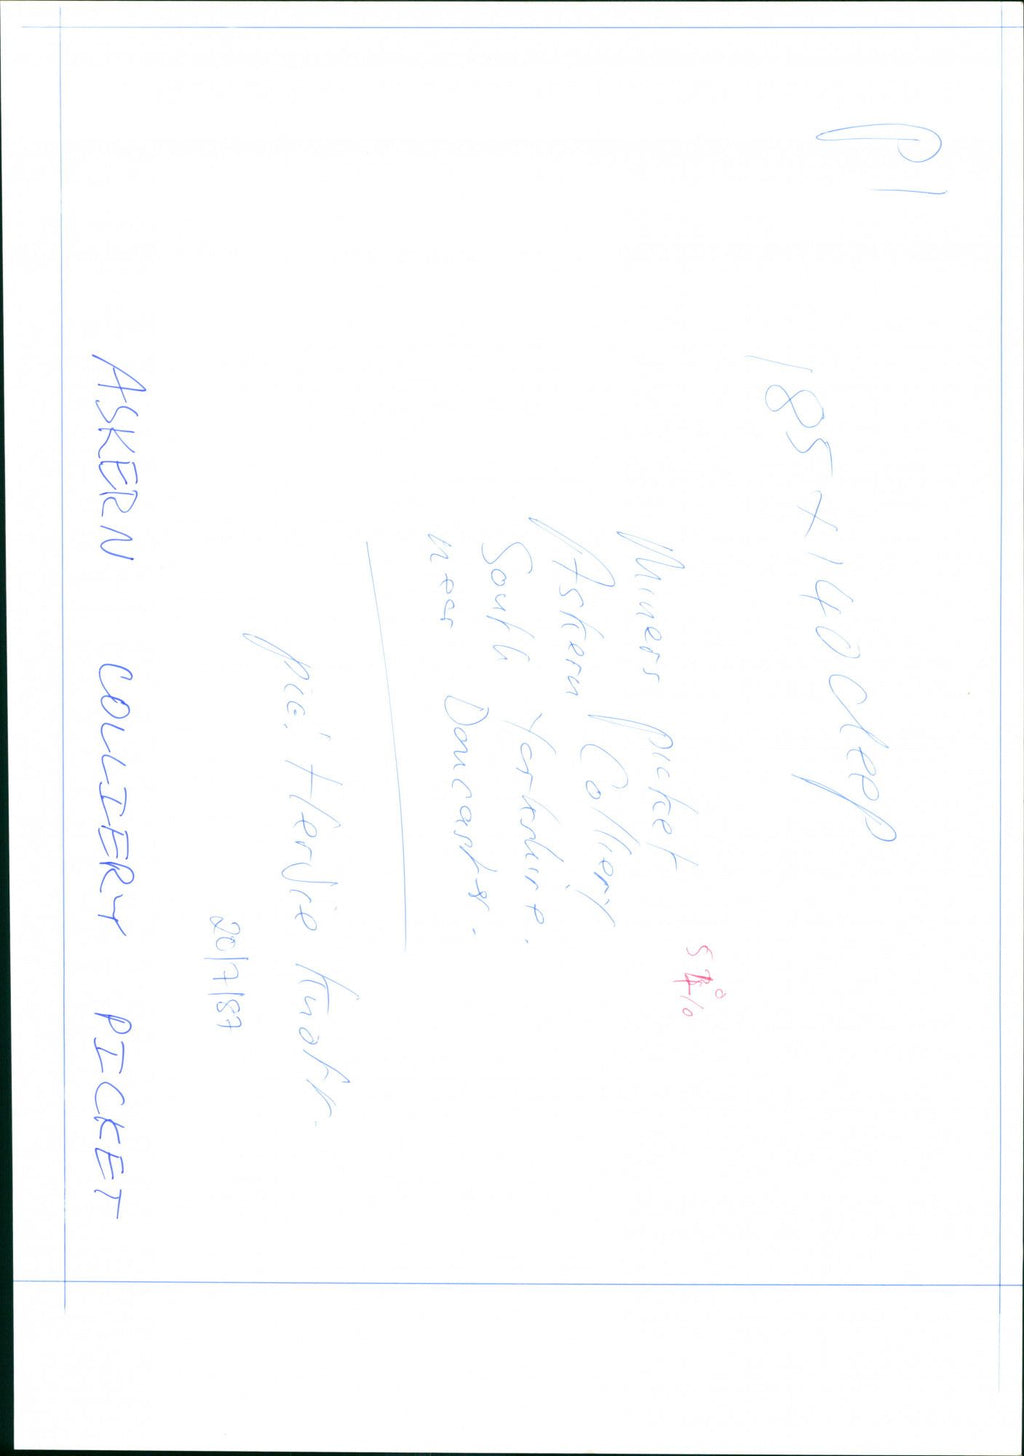 P1
185 x 140 deep
Miners picket
Askern Colliery
South Yorkshire.
near Doncaster.
pic: 
20/7/87
ASKERN COLLIERY PICKET